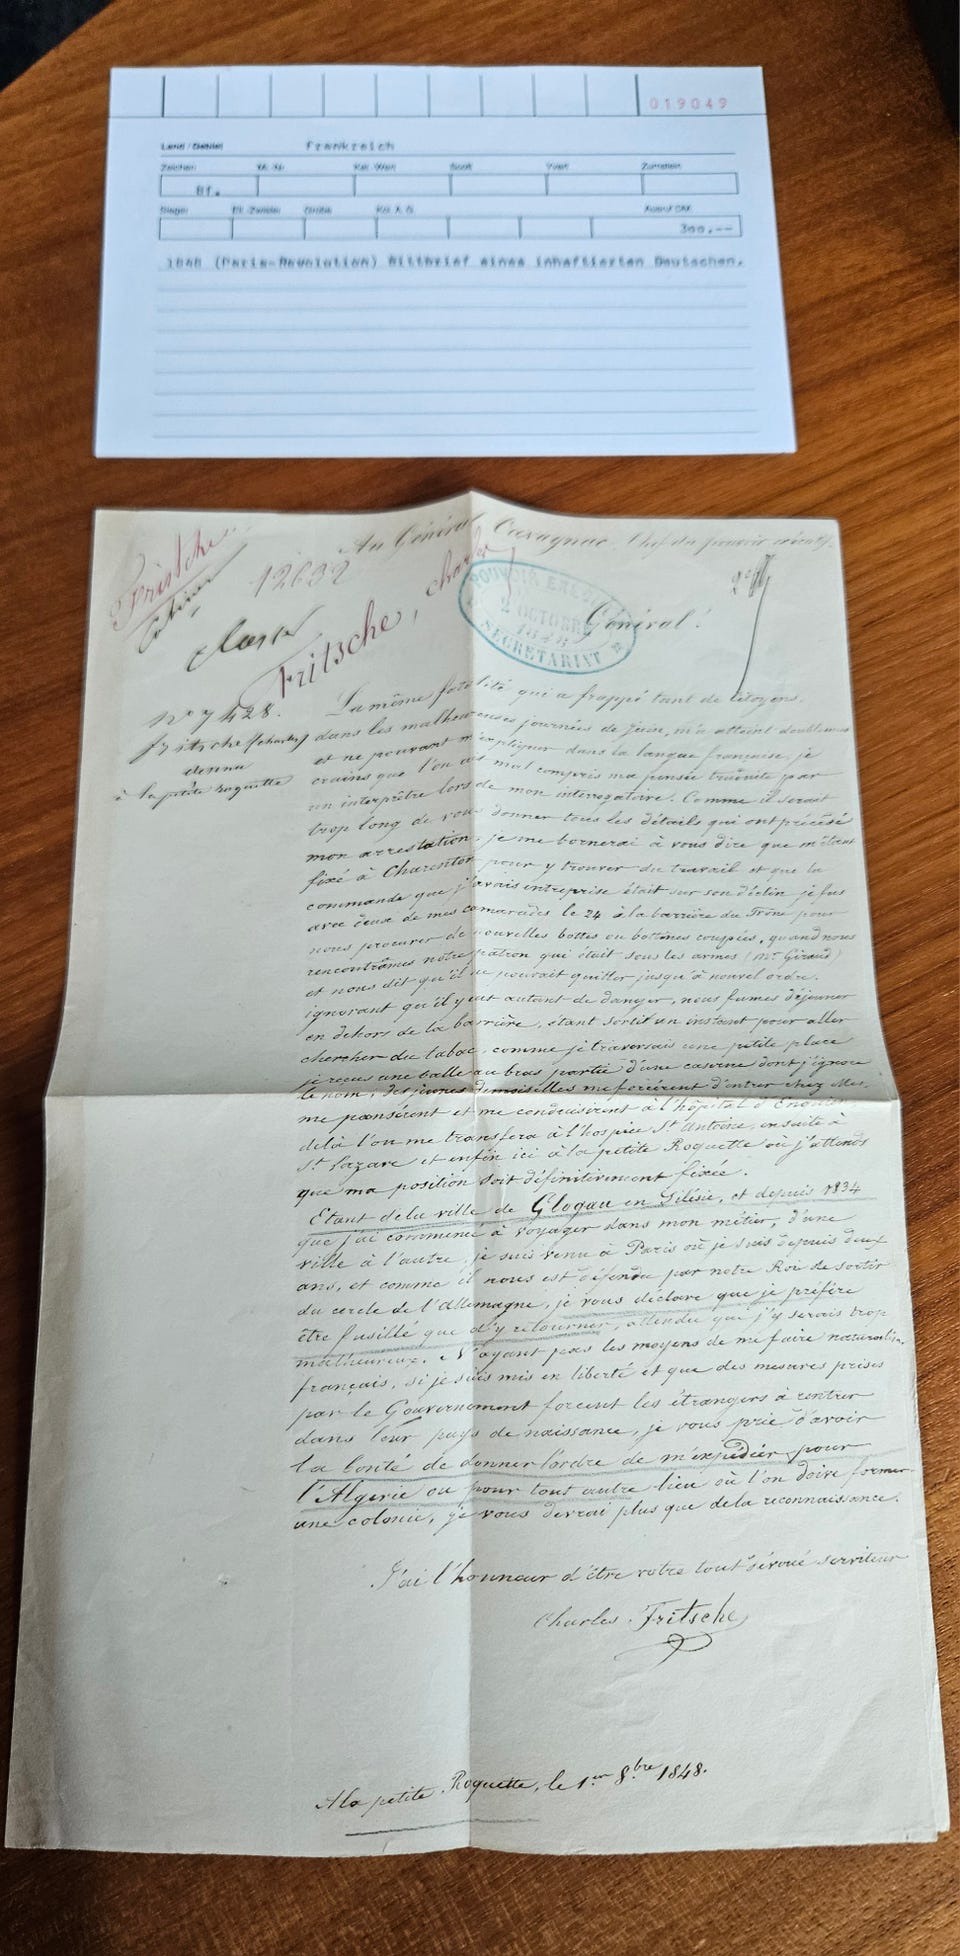 019049
Land / Gebiet Frankreich
Zeichen Mi.-Nr. Kat.-Wert Scott Yvert Zumstein
Bf.
Ausruf DM
300.--
1848 (Paris-Revolution) Bittbrief eines inhaftierten Deutschen.
Au Général Cavagnac, Chef du pouvoir exécutif.
Fritsche
12632
Fritsche, Charles
POUVOIR EXECUTIF
2 OCTOBRE
1848
SECRETARIAT
Général!
N° 7428.
fritsche (charles)
détenu
à la petite Roquette
La même fatalité qui a frappé tant de Citoyens,
dans les malheureuses journées de Juin, m'a atteint doublement
et ne pouvant m'expliquer dans la langue française, je
crains que l'on ait mal compris ma pensée traduite par
un interprêtre lors de mon interrogatoire. Comme il serait
trop long de vous donner tous les détails qui ont précédé
mon arrestation, je me bornerai à vous dire que m'étant
fixé à Charenton pour y trouver du travail et que la
commande que j'avais entreprise était sur son déclin je fus
avec deux de mes camarades le 24 à la barrière du Trône pour
nous procurer de nouvelles bottes ou bottines coupées, quand nous
rencontrâmes notre patron qui était sous les armes (Mr. Giraud)
et nous dit qu'il ne pouvait quitter jusqu'à nouvel ordre.
ignorant qu'il y eut autant de danger, nous fumes déjeuner
en dehors de la barrière, étant sortit un instant pour aller
chercher du tabac, comme je traversais une petite place
je reçus une balle au bras partie d'une caserne dont j'ignore
le nom, des jeunes demoiselles me forcèrent d'entrer chez elles,
me pansèrent et me conduisirent à l'hôpital d'Enghien
delà l'on me transfera à l'hospice St. Antoine, ensuite à
St. Lazare et enfin ici à la petite Roquette où j'attends
que ma position soit définitivement fixée.
Etant de la ville de Glogau en Silésie, et depuis 1834
que j'ai commencé à voyager dans mon métier, d'une
ville à l'autre, je suis venu à Paris où je suis depuis deux
ans, et comme il nous est défendu par notre Roi de sortir
du cercle de l'Allemagne, je vous déclare que je préfère
être fusillé que d'y retourner, attendu que j'y serais trop
malheureux. N'ayant pas les moyens de me faire naturalis.
français, si je suis mis en liberté et que des mesures prises
par le Gouvernement forcent les étrangers à rentrer
dans leur pays de naissance, je vous prie d'avoir
la bonté de donner l'ordre de m'expédier pour
l'Algerie ou pour tout autre lieu où l'on doive former
une colonie, je vous devrai plus que de la reconnaissance.
J'ai l'honneur d'être votre tout dévoué serviteur
Charles Fritsche
A la petite Roquette, le 1er 8bre 1848.